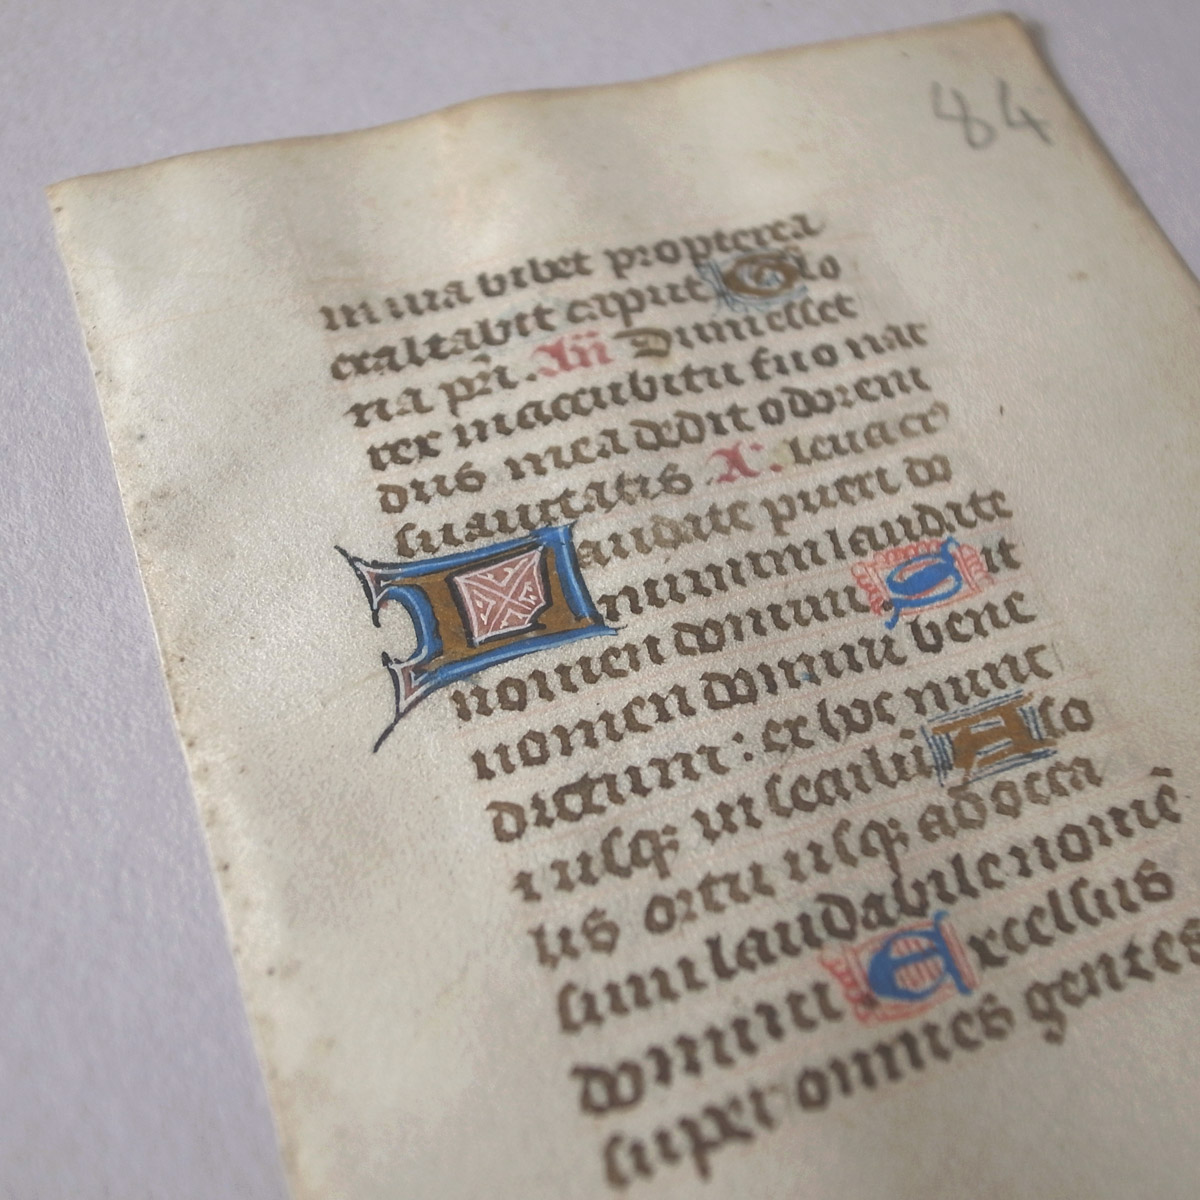 84
in via bibet propterea
exaltabit caput Glo
ria pr̃i. Añ Dum esset
rex in accubitu suo nar
dus mea dedit odorem
suavitatis. X. leua eĩ
Laudate pueri do
minum laudate
nomen domini. Sit
nomen domini bene
dictum: ex hoc nunc
⁊ usq; in seculũ. A so
lis ortu usq; ad occa
sum laudabile nomẽ
domini. Excelsus
super omnes gentes